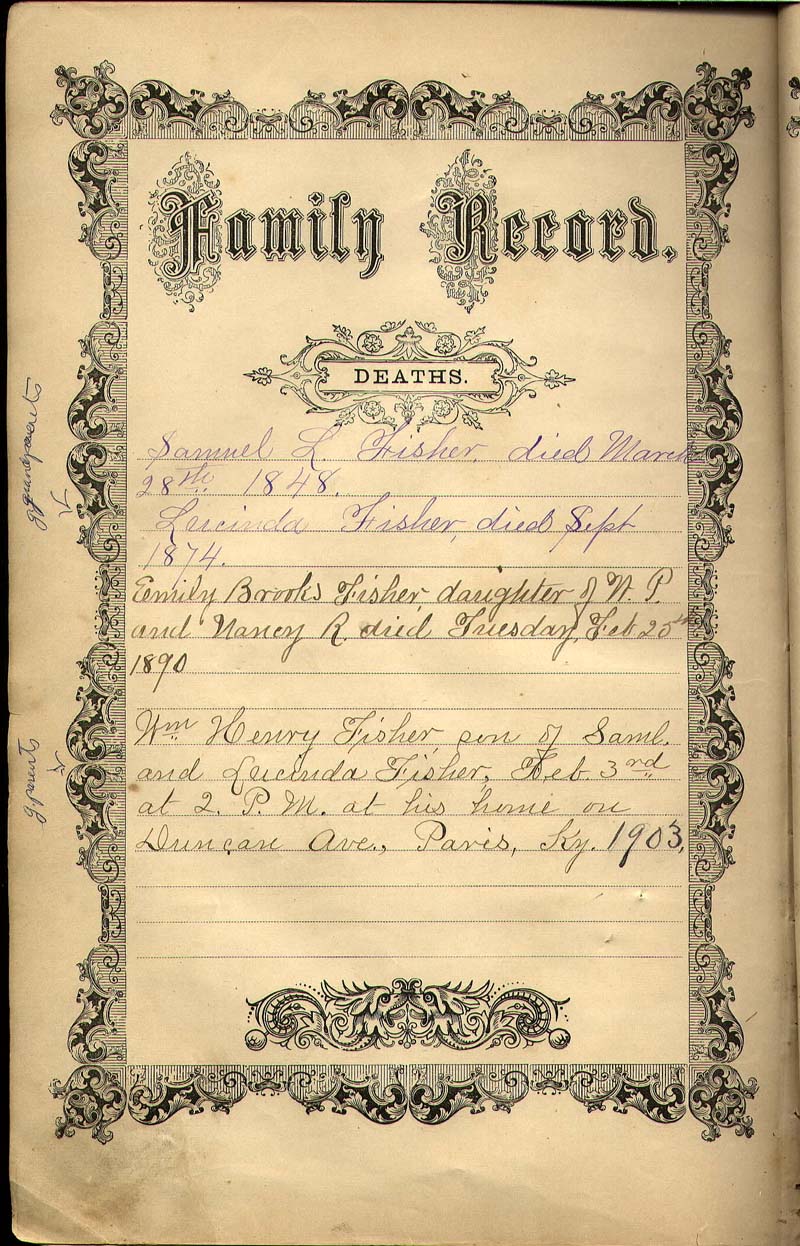 Family Record.
DEATHS.
Samuel L. Fisher, died March
28th 1848.
Lucinda Fisher, died Sept
1874.
Emily Brooks Fisher, daughter of W. P.
and Nancy R. died Tuesday, Feb 25th
1890
Wm Henry Fisher, son of Saml.
and Lucinda Fisher, Feb. 3rd
at 2. P. M. at his home on
Duncan Ave., Paris, Ky. 1903.
g grandparents
g parents